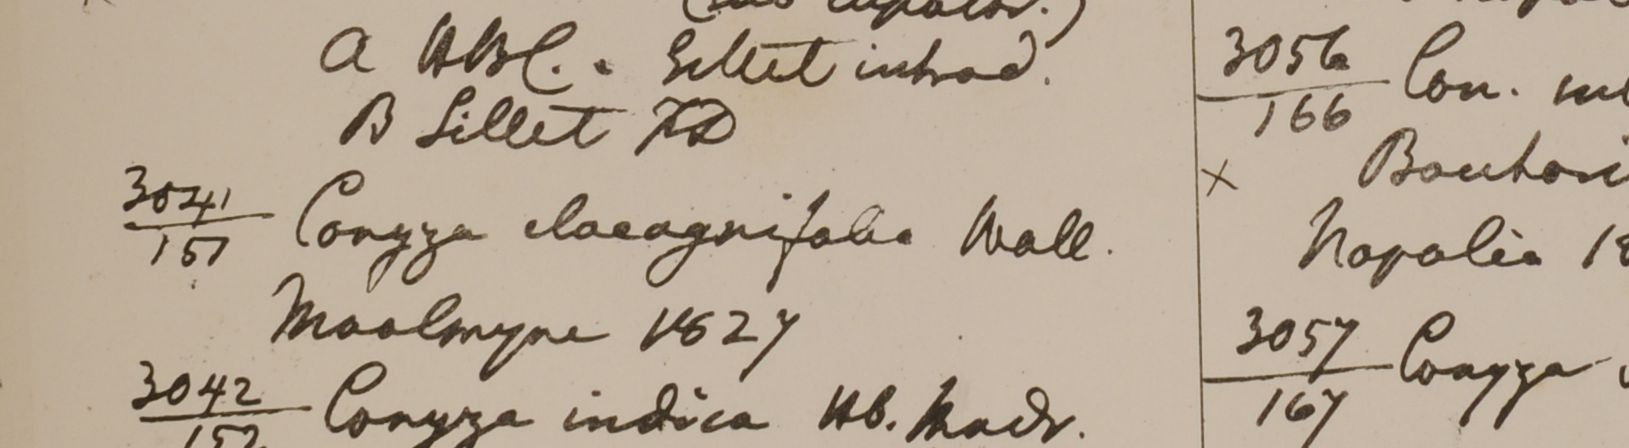 a HBC. . Sillet introd.
B Sillet FD
3041/151 Conyza elaeagnifolia Wall.
Moalmyne 1827
3042/152 Conyza indica Hb. Madr.
3056/166 Con.
×
Napalia
3057/167 Conyza